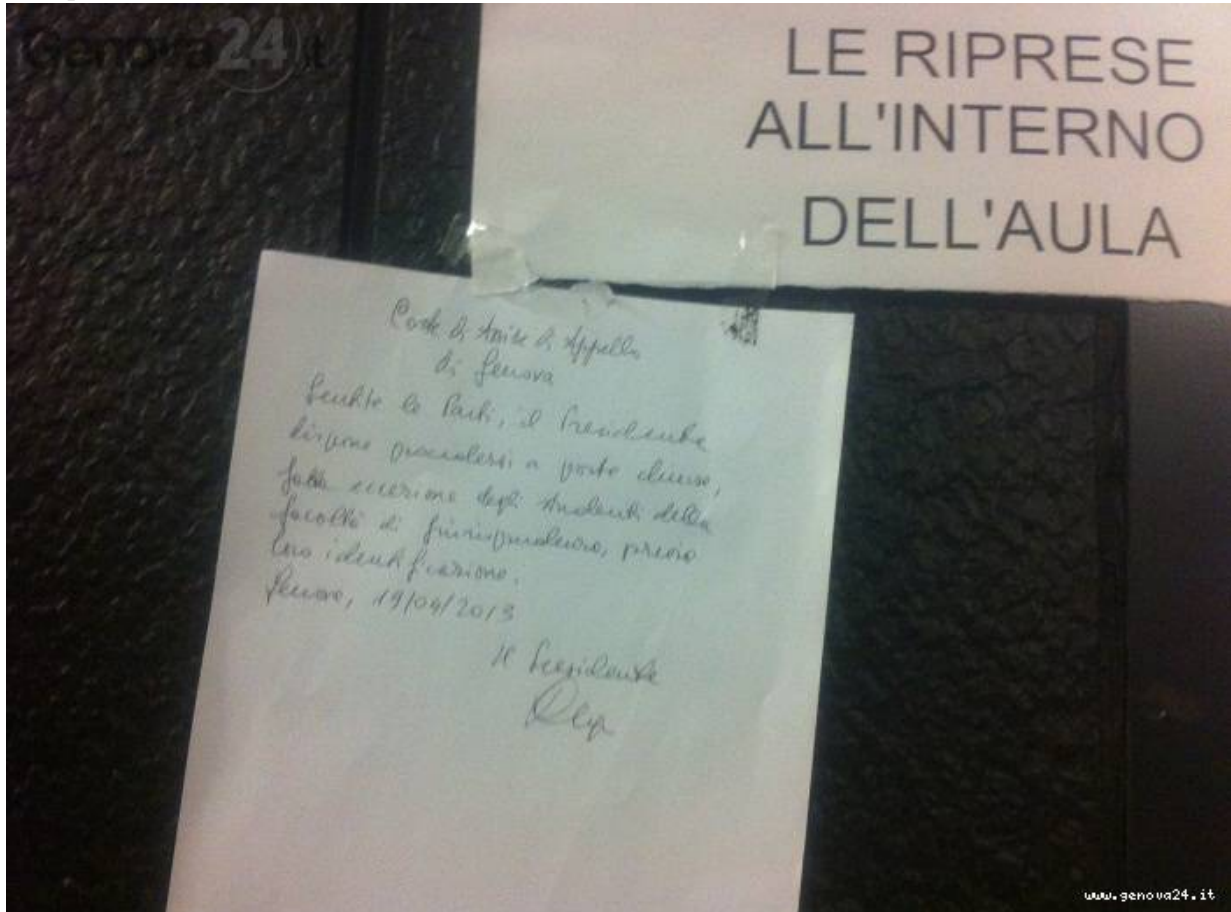 Genova24.it
LE RIPRESE
ALL'INTERNO
DELL'AULA
Corte di Assise di Appello
di Genova
Sentite le Parti, il Presidente
dispone procedersi a porte chiuse,
fatta eccezione degli studenti della
facoltà di giurisprudenza, previo
loro identificazione.
Genova, 19/04/2013
Il Presidente
www.genova24.it